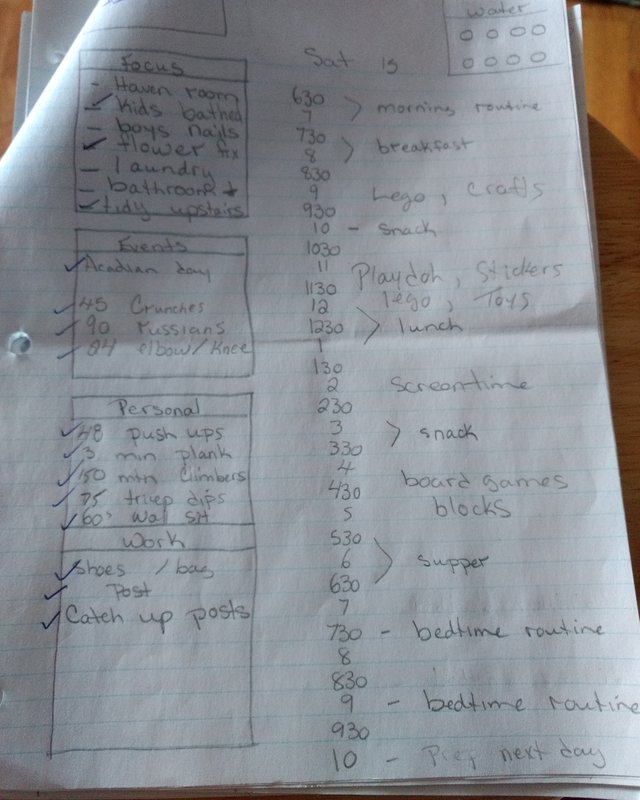 Water
Sat 15
Focus
- Haven room
✓ Kids bathed
- boys nails
✓ flower fix
- laundry
- bathroom
✓ tidy upstairs
Events
✓ Acadian day
✓ 45 Crunches
✓ 90 russians
✓ 24 elbow/knee
Personal
✓ 48 push ups
✓ 3 min plank
✓ 150 mtn climbers
✓ 75 tricep dips
✓ 60' wal sit
Work
✓ Shoes / bag
✓ Post
✓ Catch up posts
630
7 > morning routine
730
8 > breakfast
830
9 Lego, Crafts
930
10 - snack
1030
11 Playdoh, Stickers
1130 lego, Toys
12
1230 > lunch
1
130
2 screentime
230
3 > snack
330
4 board games
430 blocks
5
530
6 > supper
630
7
730 - bedtime routine
8
830
9 - bedtime routine
930
10 - Prep next day